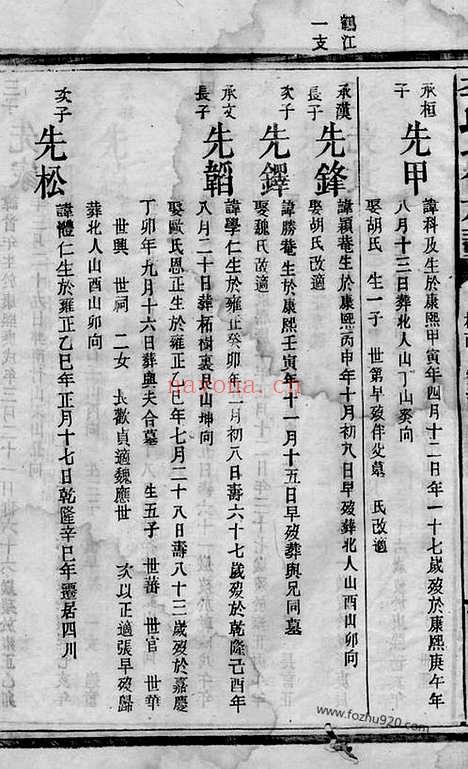 鶴江
一支
承桓
子
先甲
諱科及生於康熙甲寅年四月十二日年一十七歲歿於康熙庚午年
八月十三日葬北人山丁山癸向
娶胡氏 生一子 世第早歿伴父墓 氏改適
承漢
長子
先鋒
諱穎菴生於康熙丙申年十月初九日早歿葬北人山酉山卯向
娶胡氏改適
次子
先鐸
諱勝菴生於康熙壬寅年十一月十五日早歿葬與兄同墓
娶魏氏改適
承文
長子
先韜
諱學仁生於雍正癸卯年二月初八日壽六十七歲歿於乾隆己酉年
八月二十日葬柘樹裏艮山坤向
娶歐氏恩正生於雍正乙巳年七月二十八日壽八十三歲歿於嘉慶
丁卯年九月十六日葬與夫合墓 生五子 世蕃 世官 世華
世興 世祠 二女 長歡貞適魏應世 次以正適張早歿歸
葬北人山酉山卯向
次子
先松
諱體仁生於雍正乙巳年正月十七日乾隆辛巳年遷居四川
naxona.cn
www.fozhu920.com